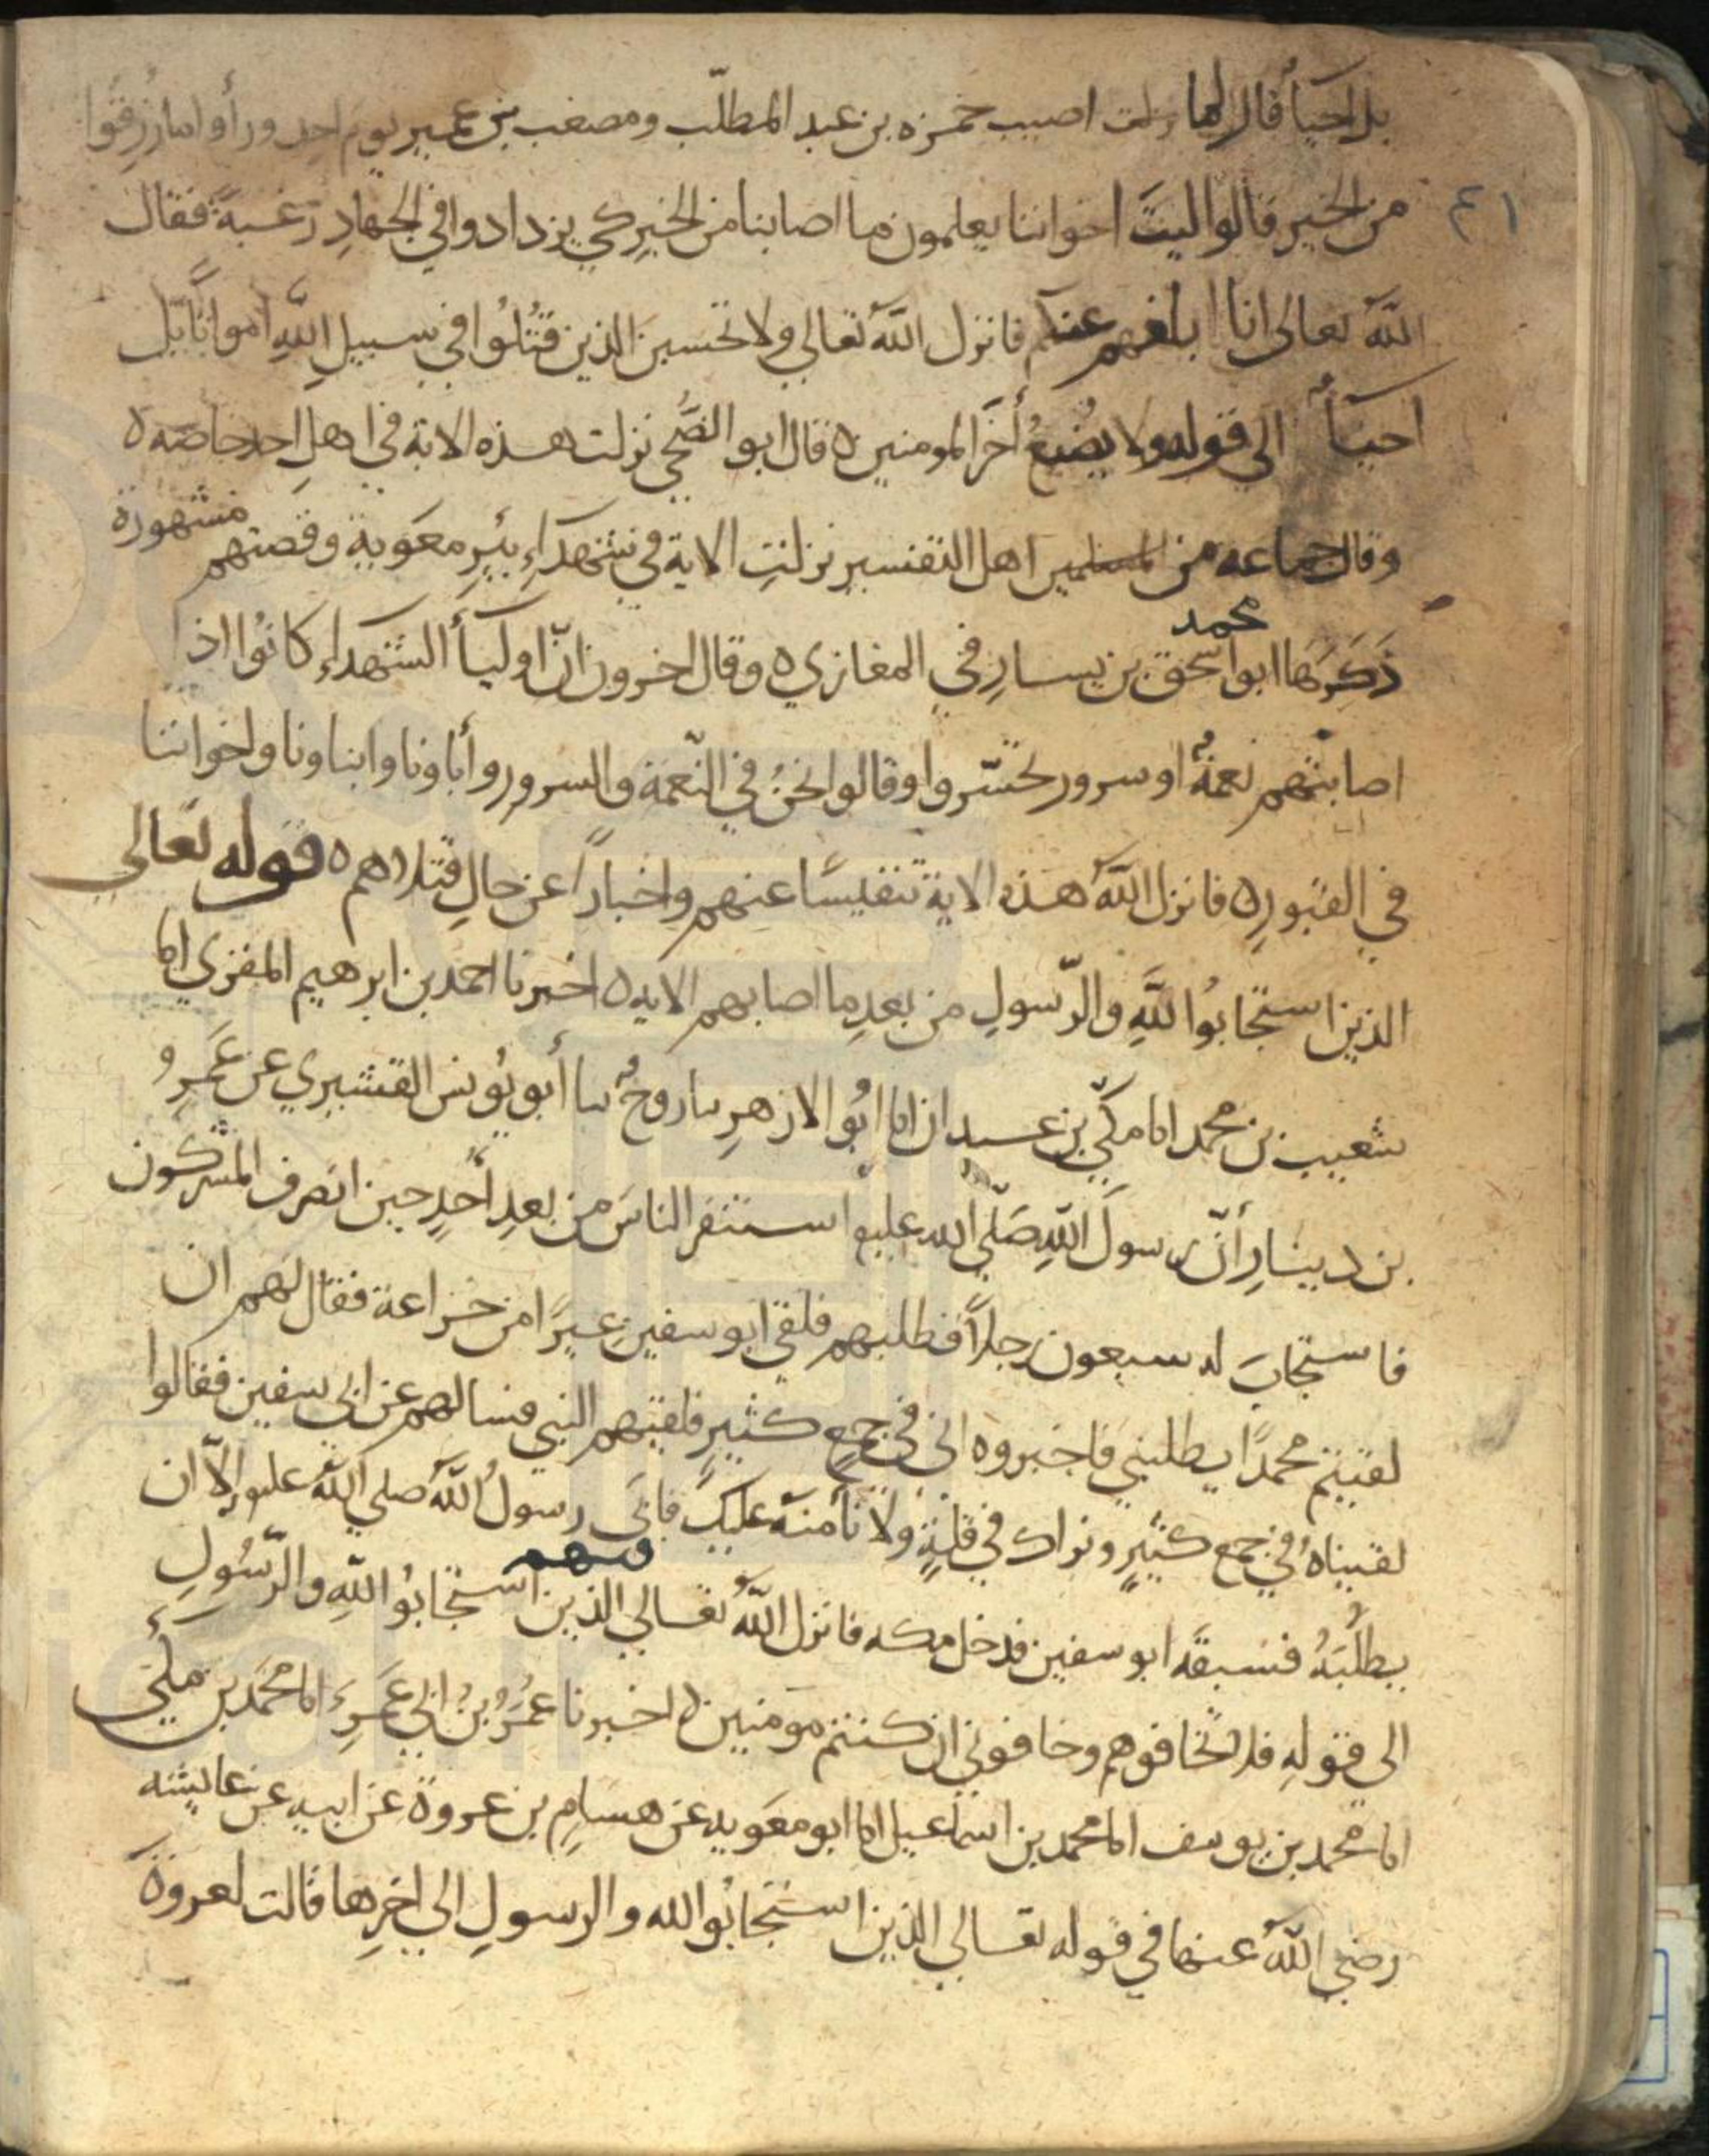 بل احيأ قال لما اصيب حمزه بن عبد المطلّب ومصعب بن عمير يوم احد ورأوا ما رزقوا
من الخير قالوا ليتَ اخواننا يعلمون ما اصابنا من الخيرِ كي يزدادوا في الجهادِ رَغبةً فقال
٤١
اللّه تعالى انا ابلغهم عنكم فانزل اللّه تعالي ولا تحسبن الذين قُتُلوُا في سبيلِ اللّهِ امواتًا بل
احيأٌ الي قوله ولا يضيعُ أجرَ المومنين ه قال ابو الضُّحي نزلت هذه الاية في اهلِ احد خاصّه ه
وقال جماعه من اهل التفسيرِ نزلتِ الاية في شهدَاءِ بئرِ معَوية وقصتهم مشهورة
ذَكَرَهَا محمد ابو اسحٰق بن يسارِ في المغازي ه وقال اخرون انّ اوليأ الشهداءِ كانوُا اذا
اصابتْهم نعمةٌ او سرور تحسّروا وقالوا نحنُ في النّعمة والسرور وأباونا وابناونا واخواننا
في القبورِ ه فانزل اللّهُ هذه الاية تنفيسًا عنهم واخبارًا عن حالِ قتلاهم ه قوله تعالي
الذين استجابوُا للّهِ والرّسولِ من بعدِ ما اصابهم الايه ه اخبرنا احمد بن ابرهيم المقري انا
شعيب بن محمد انا مكّي بن عبدان انا ابوُ الازهرِ نا روحٌ نا أبو يوُنس القشيري عن عَمرِو
بن دينارِ أنّ رسولَ اللّهِ صَلّي الله عليه استنفر الناسَ من بعدِ أحُدٍ حين انصرف المشركون
فاستجابَ له سبعون رجلاً فطلبهم فلقي ابو سفين عيرًا من خزاعة فقال لهم ان
لقيتم محمدًا يطلبني فاخبروه اني في جمعٍ كثيرٍ فلقيهم النبي فسالهم عن ابي سفين فقالوا
لقيناهُ في جمع كثيرٍ ونراك في قلةٍ ولا نأمنهُ عليك فابَى رسولُ اللّهِ صلي اللّهُ عليه إلاّ ان
يطلُبَهُ فسبقهَ ابو سفين فدخل مكه فانزل اللّهُ تعالي فيهم الذين استجابوُا للّهِ والرّسُولِ
الى قولهِ فلا تخافوهم وخافوني ان كنتم مومنين ه اخبرنا عمرُو بنُ ابي عَمرو انا محمّد بن مكّي
انا محمد بن يوسف انا محمد بن اسماعيل انا ابو معَويه عن هشامِ بن عروة عن ابيه عن عايشه
رضي اللّهُ عنها في قوله تعالي الذين استجابوُا لله والرسولِ الي اخرِها قالت لعروة